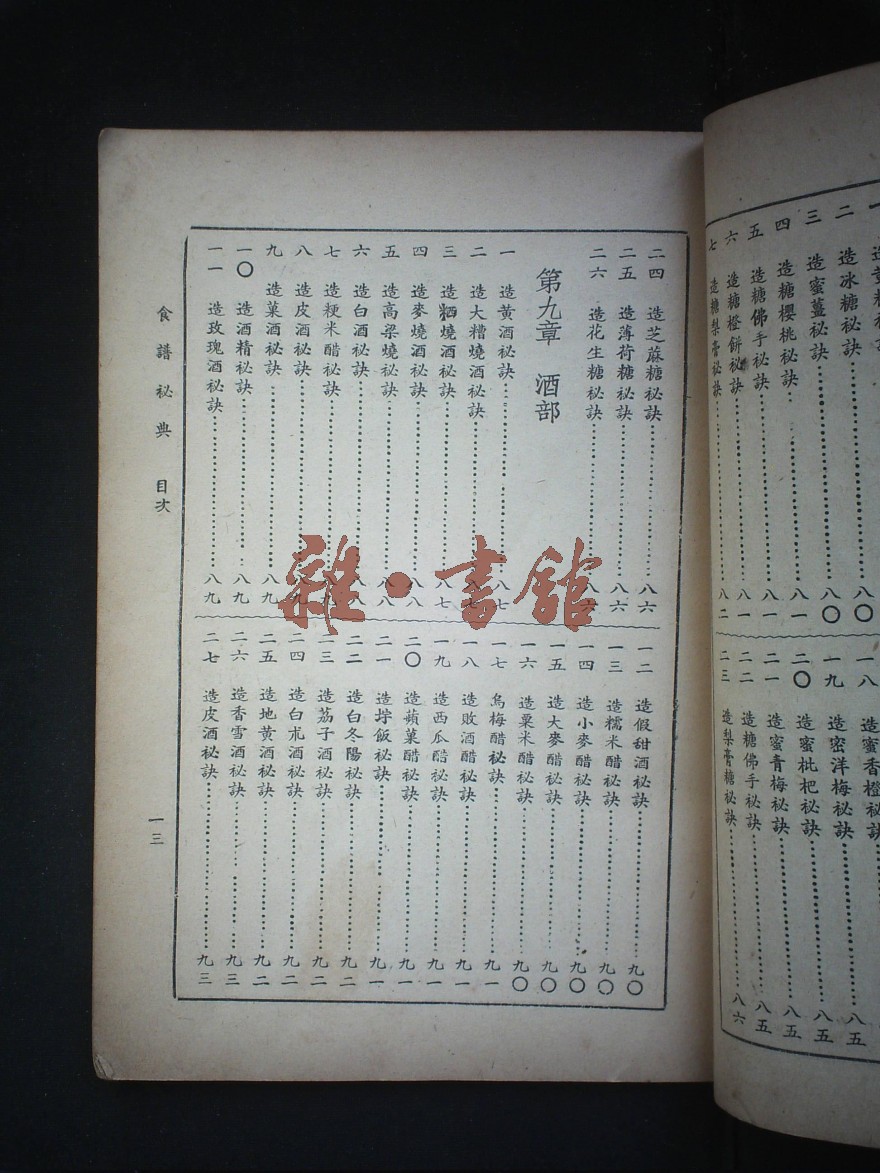 一
二 造冰糖秘訣 八〇
三 造蜜薑秘訣 八〇
四 造糖櫻桃秘訣 八一
五 造糖佛手秘訣 八一
六 造糖橙餅秘訣 八一
七 造糖梨膏秘訣 八二
一八 造蜜香橙秘訣 八五
一九 造密洋梅秘訣 八五
二〇 造蜜枇杷秘訣 八五
二一 造蜜青梅秘訣 八五
二二 造糖佛手秘訣 八五
二三 造梨膏糖秘訣 八六
二四 造芝蔴糖秘訣 八六
二五 造薄荷糖秘訣 八六
二六 造花生糖秘訣 八六
第九章 酒部
一 造黃酒秘訣 八七
二 造大糟燒酒秘訣 八七
三 造粞燒酒秘訣 八七
四 造麥燒酒秘訣 八八
五 造高梁燒秘訣 八八
六 造白酒秘訣 八八
七 造粳米醋秘訣 八九
八 造皮酒秘訣 八九
九 造菓酒秘訣 八九
一〇 造酒精秘訣 八九
一一 造玫瑰酒秘訣 八九
一二 造假甜酒秘訣 九〇
一三 造糯米醋秘訣 九〇
一四 造小麥醋秘訣 九〇
一五 造大麥醋秘訣 九〇
一六 造粟米醋秘訣 九〇
一七 烏梅醋秘訣 九一
一八 造敗酒醋秘訣 九一
一九 造西瓜醋秘訣 九一
二〇 造蘋菓醋秘訣 九一
二一 造垨飯秘訣 九一
二二 造白冬陽秘訣 九二
二三 造荔子酒秘訣 九二
二四 造白朮酒秘訣 九二
二五 造地黃酒秘訣 九二
二六 造香雪酒秘訣 九三
二七 造皮酒秘訣 九三
食譜秘典 目次
一三
雜·書館